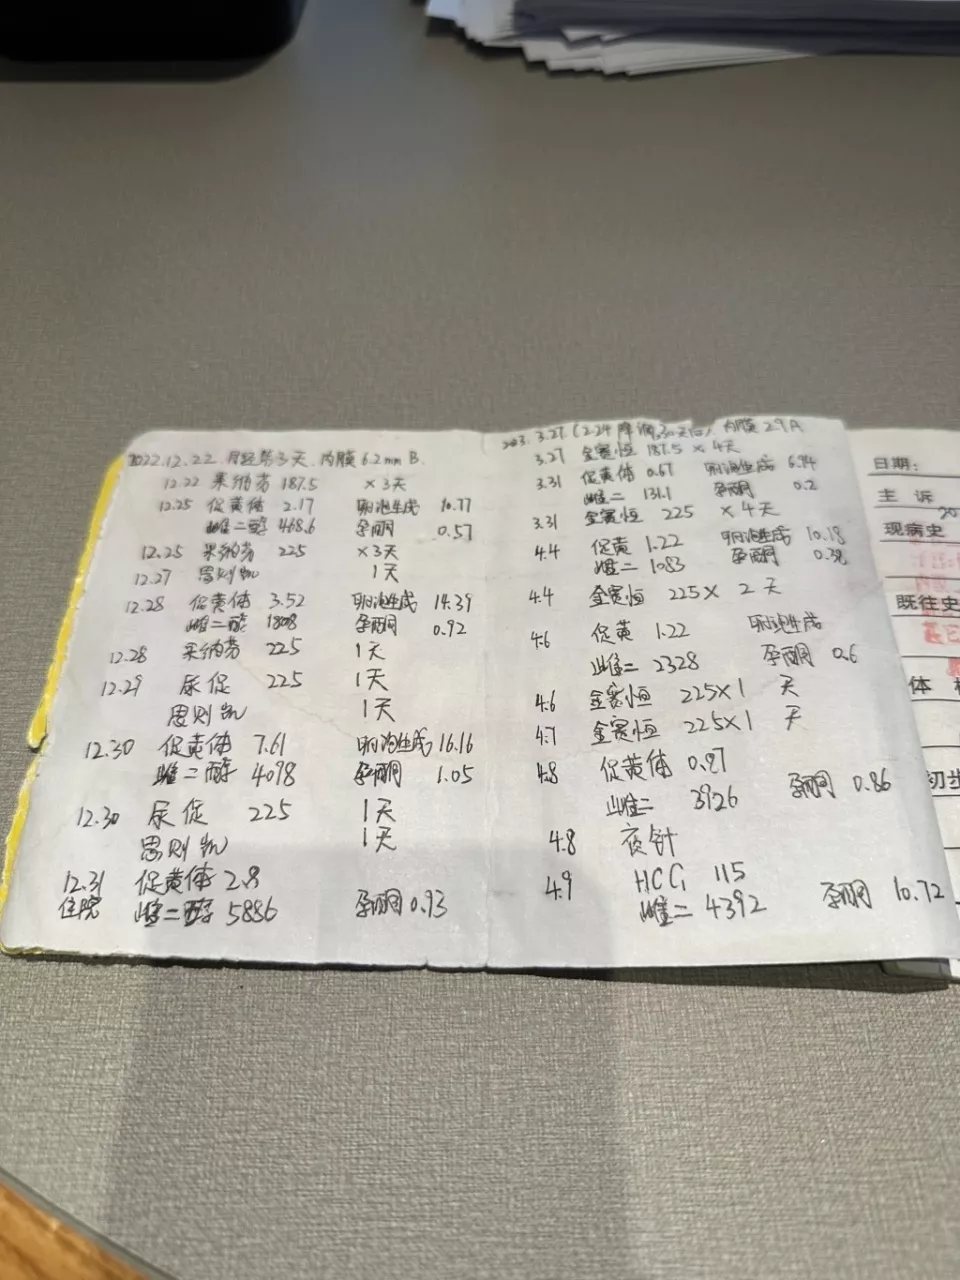 2022.12.22 月经第3天 内膜6.2mm B.
12.22 果纳芬 187.5 ×3天
12.25 促黄体 2.17 卵泡生成 10.77
雌二醇 468.6 孕酮 0.57
12.25 果纳芬 225 ×3天
12.27 思则凯 1天
12.28 促黄体 3.52 卵泡生成 14.39
雌二醇 1808 孕酮 0.92
12.28 果纳芬 225 1天
12.29 尿促 225 1天
思则凯 1天
12.30 促黄体 7.61 卵泡生成 16.16
雌二醇 4098 孕酮 1.05
12.30 尿促 225 1天
思则凯 1天
12.31 促黄体 2.8
住院 雌二醇 5886 孕酮 0.93
3.27 (2.24降调30天后) 内膜2.9A
3.27 金赛恒 187.5 × 4天
3.31 促黄体 0.67 卵泡生成 6.94
雌二 131.1 孕酮 0.2
3.31 金赛恒 225 × 4天
4.4 促黄 1.22 卵泡生成 10.18
雌二 1083 孕酮 0.38
4.4 金赛恒 225 × 2 天
4.6 促黄 1.22 卵泡生成
雌二 2328 孕酮 0.6
4.6 金赛恒 225×1 天
4.7 金赛恒 225×1 天
4.8 促黄体 0.87
雌二 3926 孕酮 0.86
4.8 夜针
4.9 HCG 115
雌二 4392 孕酮 10.72
日期:
主 诉
20
现病史
既往史
体
初步